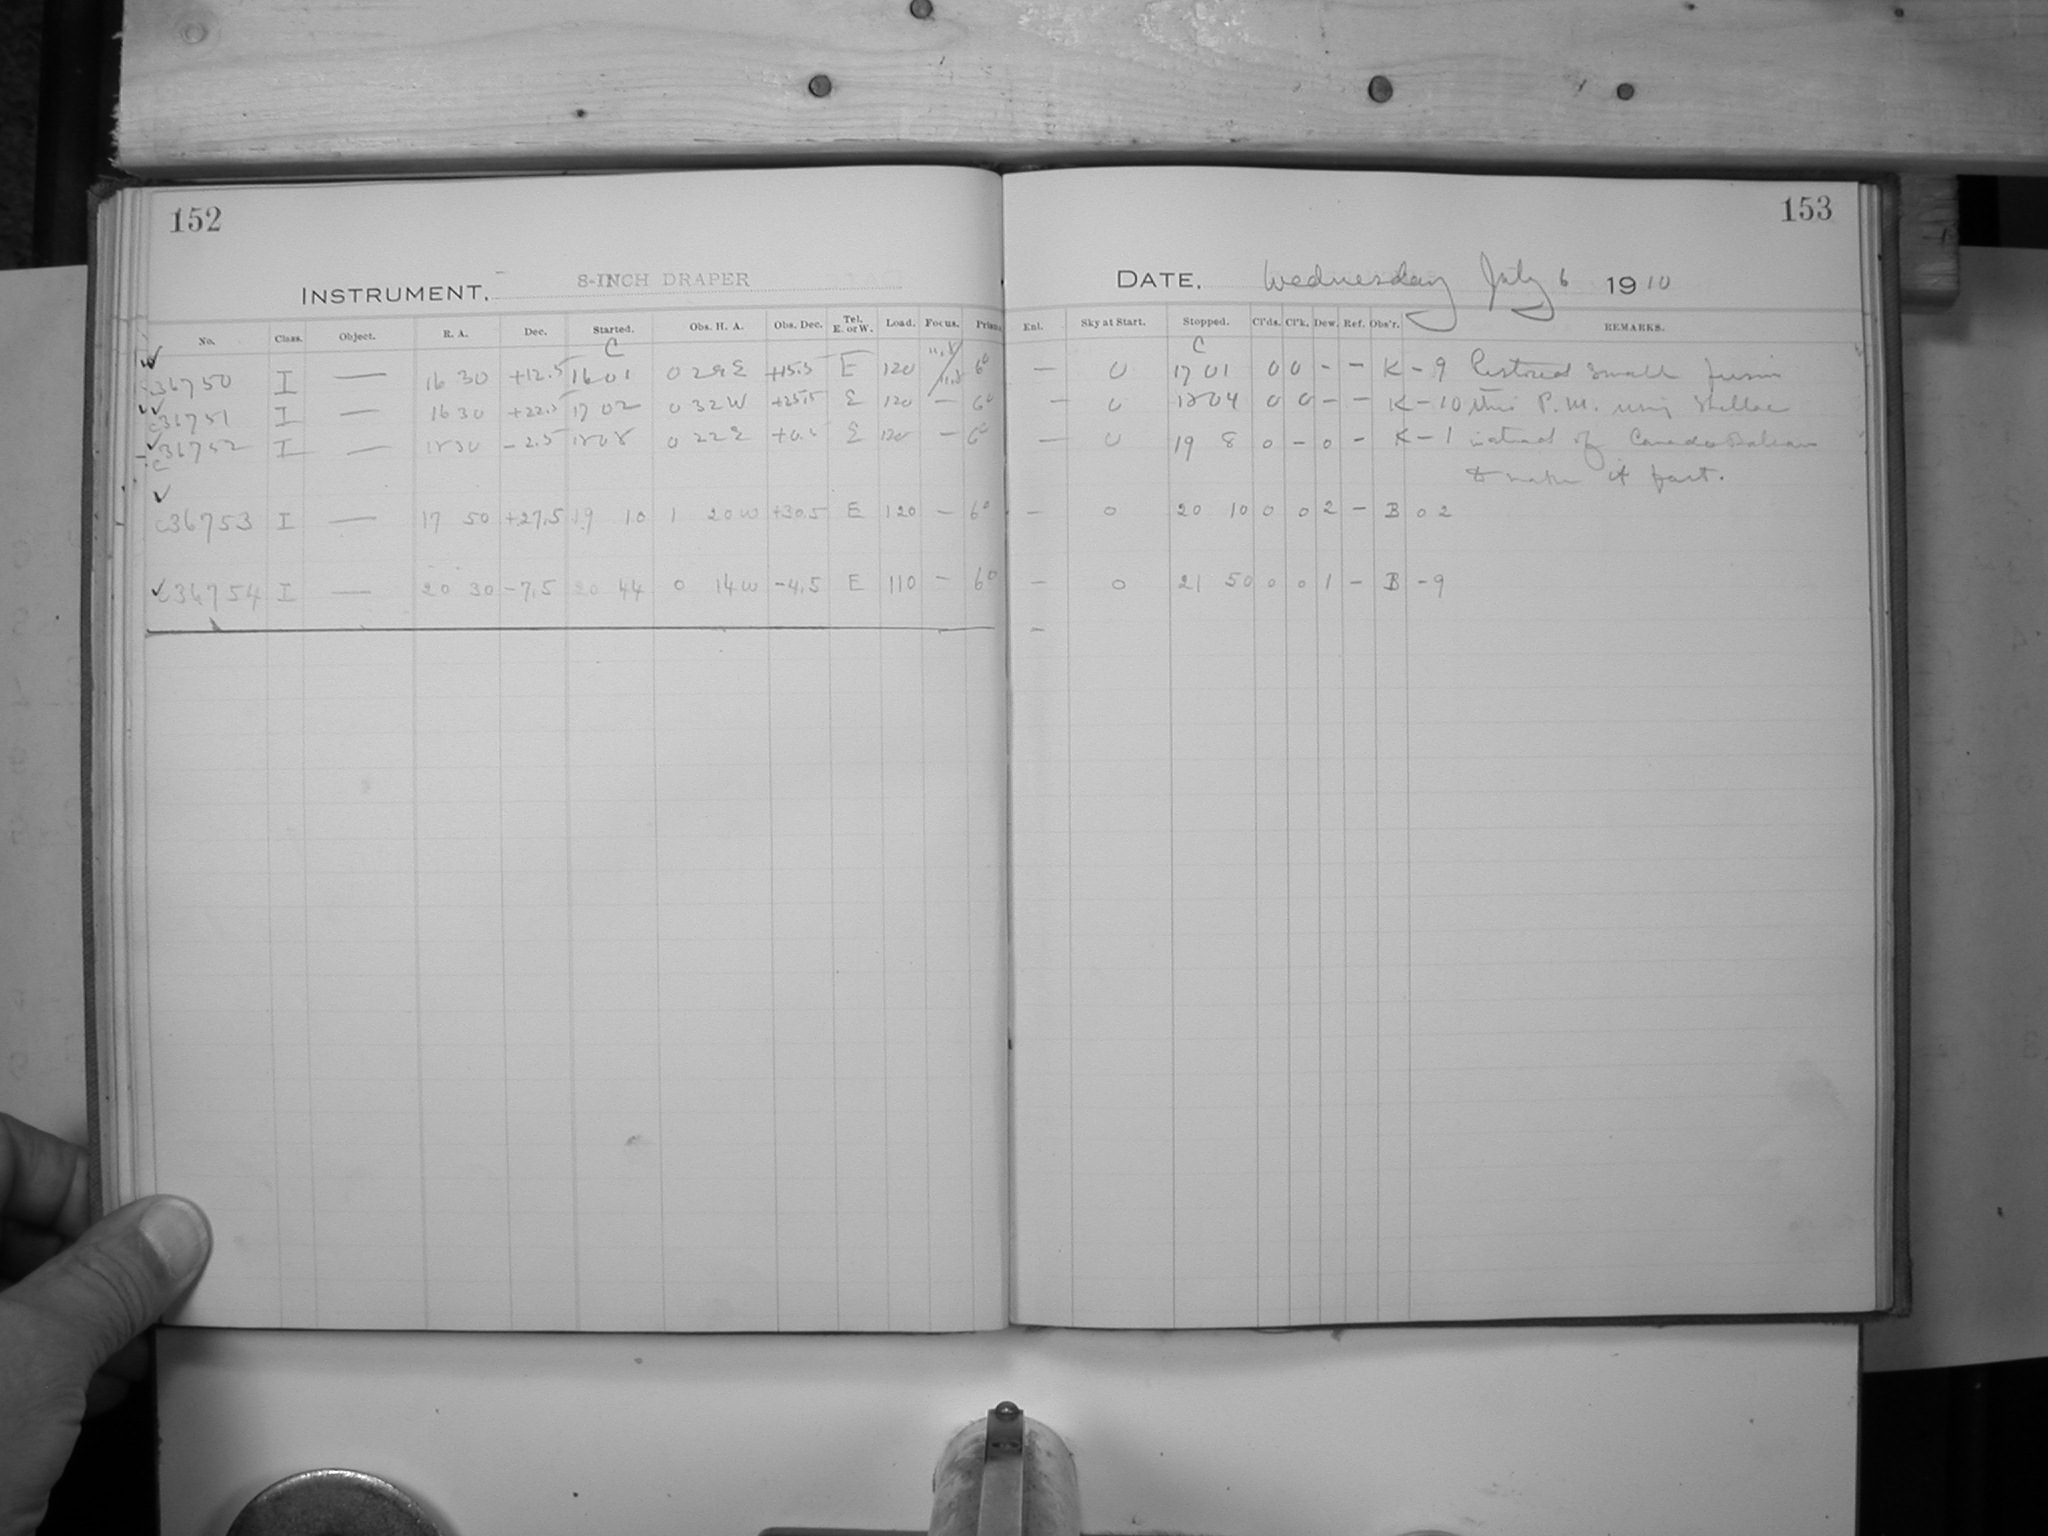 152
INSTRUMENT. 8-INCH DRAPER
No. Class. Object. R. A. Dec. Started. Obs. H. A. Obs. Dec. Tel. E. or W. Load. Focus. Prism.
C
c36750 I — 16 30 +12.5 16 01 0 29 E +15.5 E 120 11.8/11.8 6°
c36751 I — 16 30 +22.5 17 02 0 32 W +25.5 E 120 — 6°
c36752 I — 18 30 -2.5 18 08 0 22 E +0.5 E 120 — 6°
c36753 I — 17 50 +27.5 19 10 1 20 W +30.5 E 120 — 6°
c36754 I — 20 30 -7.5 20 44 0 14 W -4.5 E 110 — 6°
153
DATE. Wednesday July 6 1910
Enl. Sky at Start. Stopped. Cl'ds. Cl'k. Dew. Ref. Obs'r. REMARKS.
C
— 0 17 01 0 0 - - K - 9 Restored small prism
— 0 18 04 0 0 - - K - 10 this P. M. using Shellac
— 0 19 8 0 - 0 - K - 1 instead of Canada Balsam
to make it fast.
— 0 20 10 0 0 2 - B 0 2
— 0 21 50 0 0 1 - B - 9
—